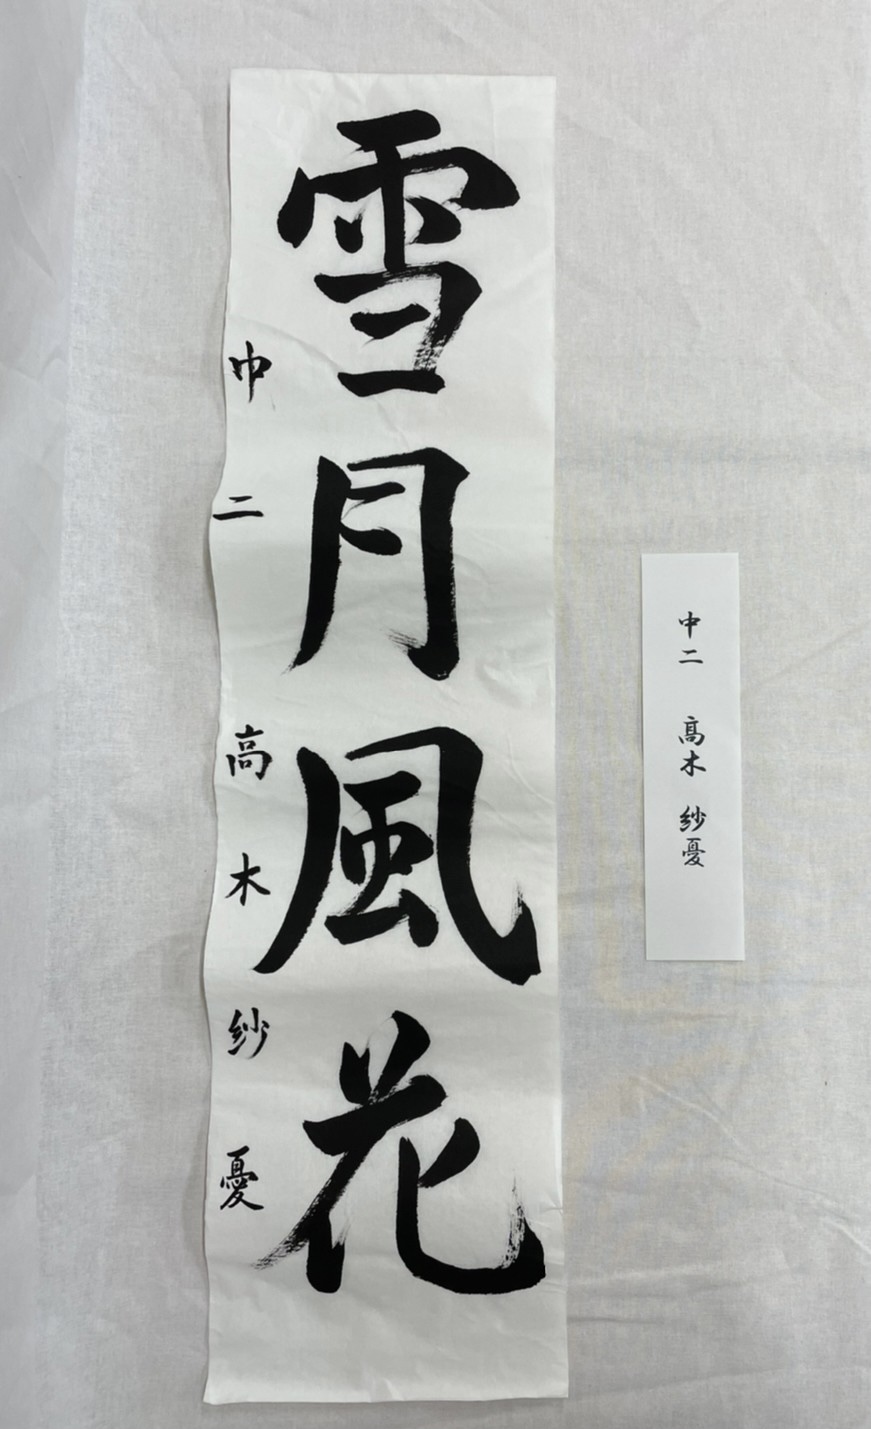 雪月風花
中二 高木紗憂
中二 髙木 紗憂